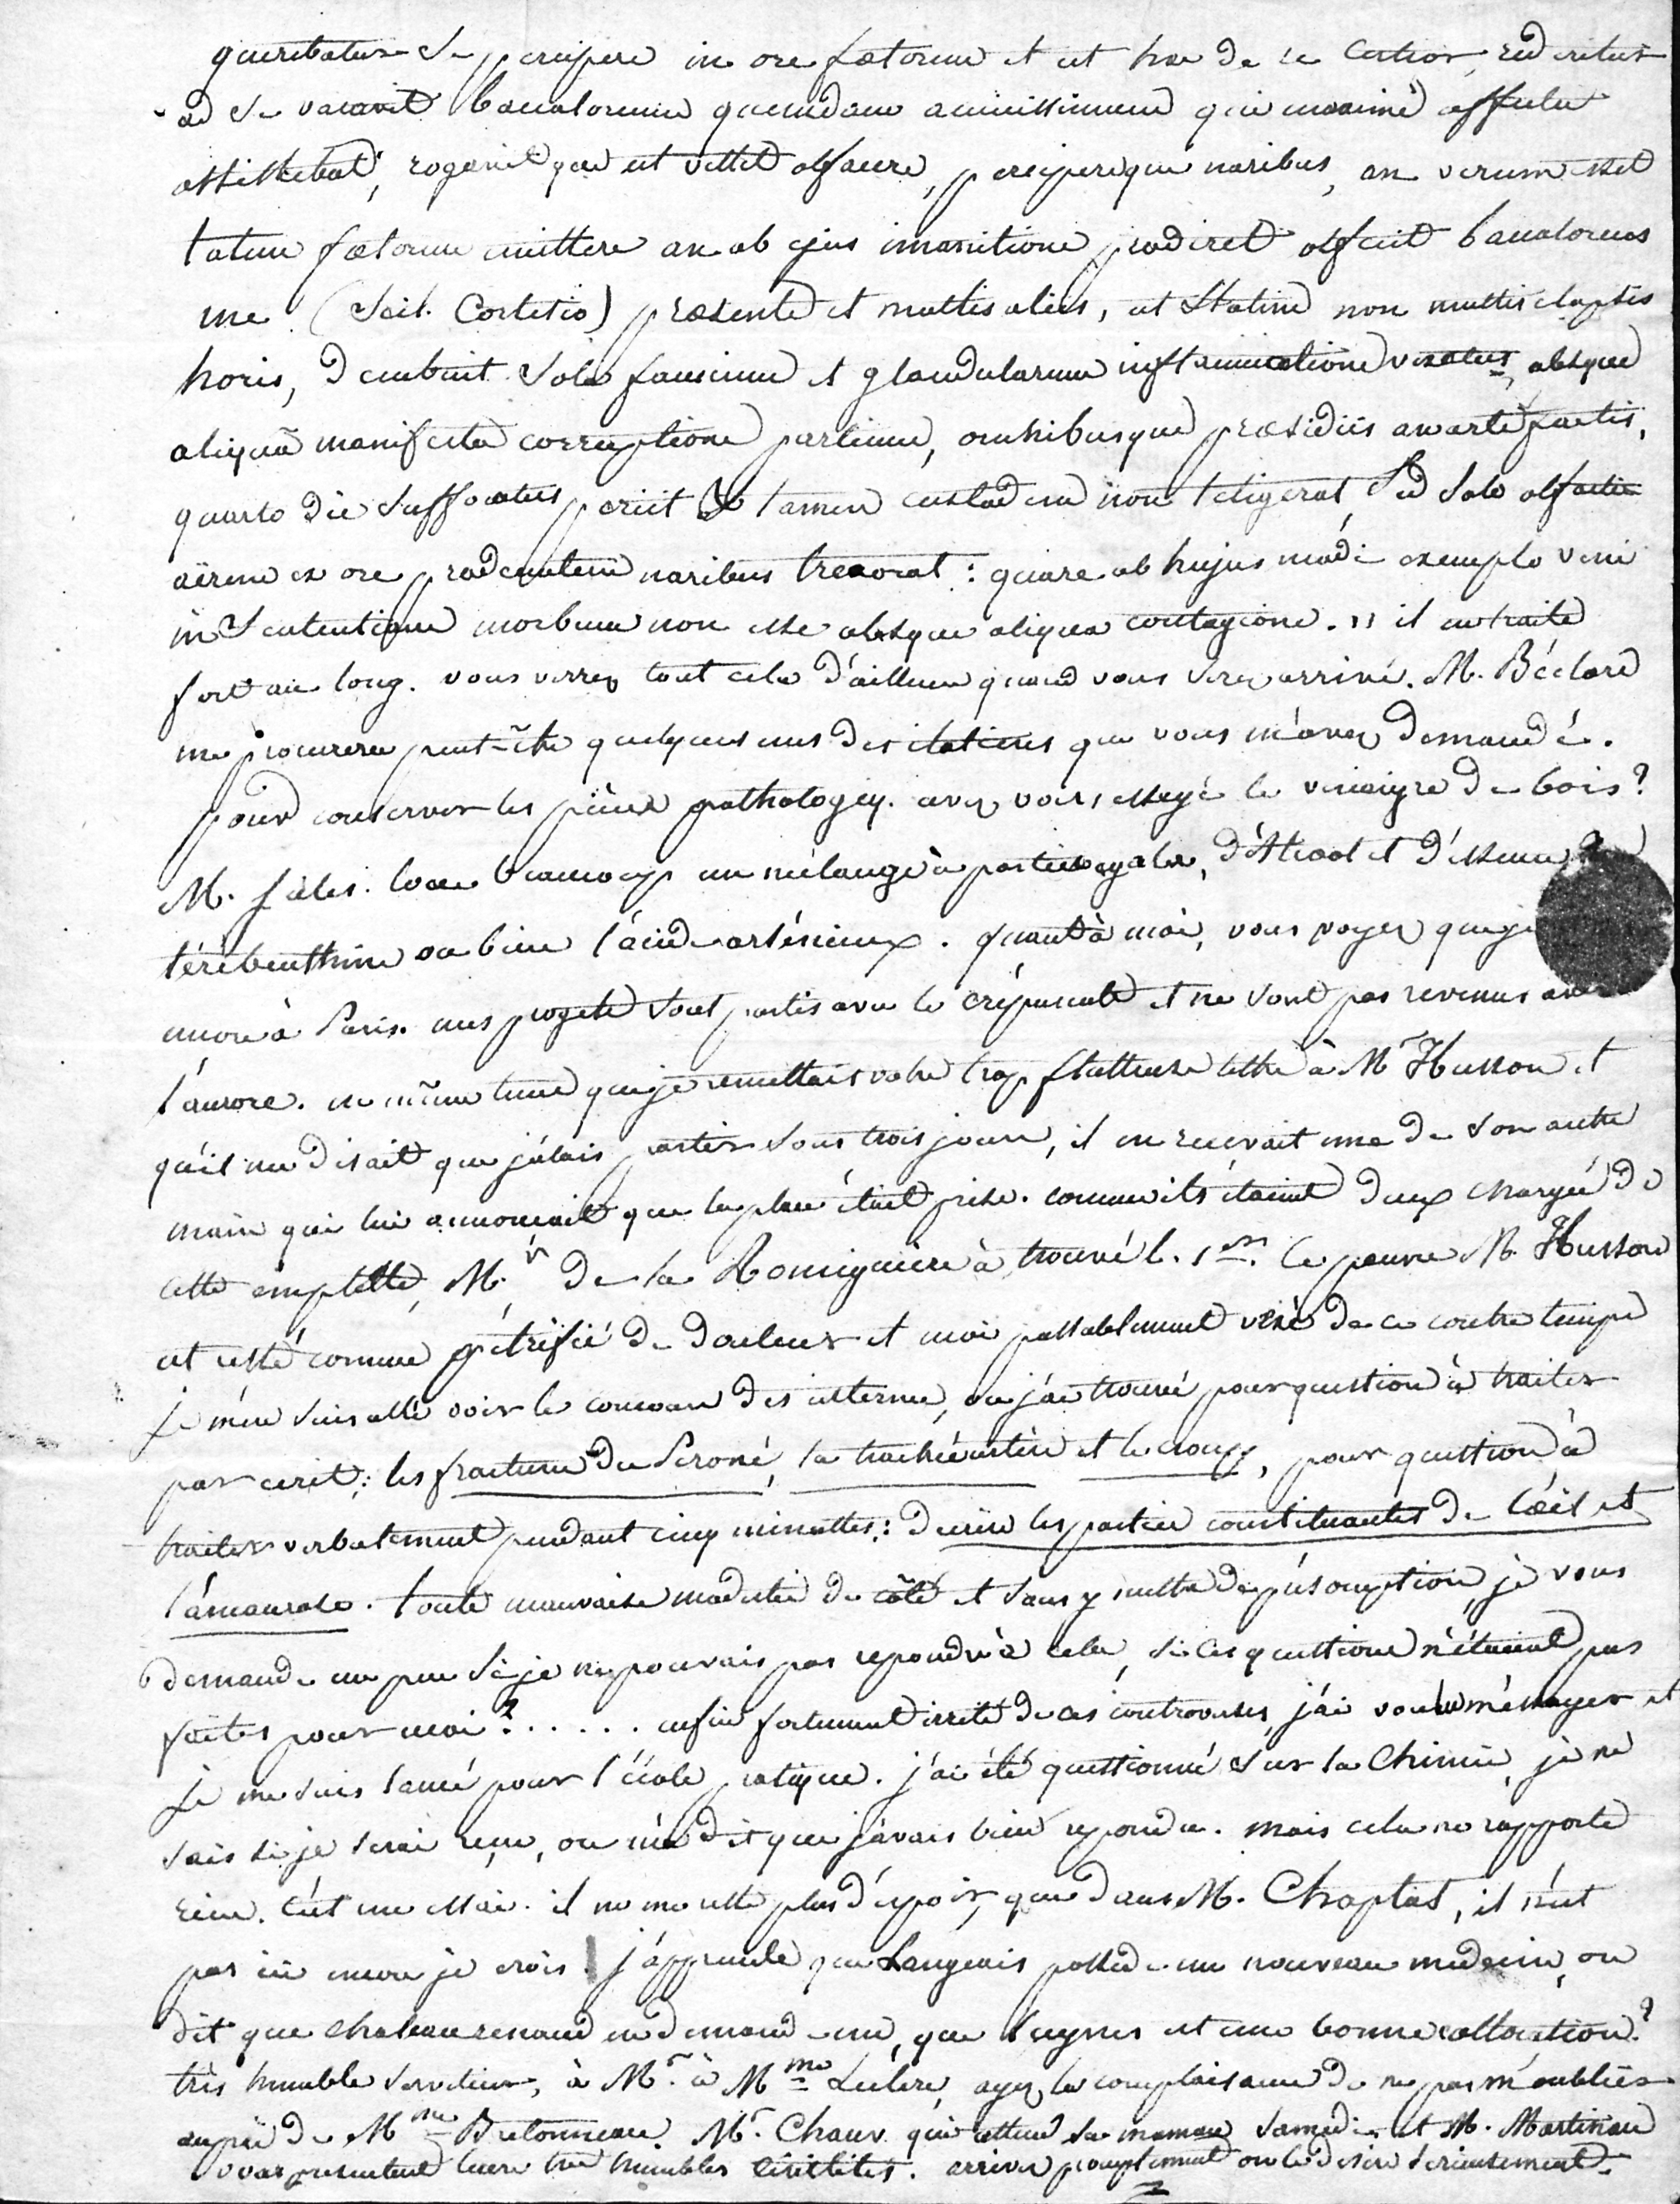 querebatur se percipere in ore fœtorem et ut hac de re certior redderetur
ad se vocavit baccaloreum quemdam amicissimum qui maximè affectu
assistebat; rogavit que ut vellet olfacere, percipereque naribus, an verum esset
talem fœtorem emittere an ab ejus inanitione prodiret olfecit baccaloreus
me (Scil. Cortesio) præsente et multis aliis, at statim non multis elapsis
horis, decubuit sola faucium et glandularum inflammatione vexatus, absque
aliqua manifesta corruptione partium, omnibusque præsidiis ex arte factis,
quarto die suffocatus periit & tamen eumdem non tetigerat, sed solo olfactu
aërem ex ore prodeuntem naribus traxerat : quare ab hujus modi exemplo veni
in sententiam morbum non esse absque aliqua contagione. » il en traite
fort au long. vous verrez tout cela d'ailleurs quand vous serez arrivé. M. Béclard
me procurera peut-être quelques unes des citations que vous m'avez demandé.
pour conserver les pièces pathologiq. avez vous essayé le vinaigre de bois ?
M. Jales. loue beaucoup un mélange à parties egales, d'Alcool et d'essence de
térébenthine ou bien l'acide arsénieux. quant à moi, vous voyez que je
encore à Paris. mes projets sont partis avec le crépuscule et ne sont pas revenus avec
l'aurore. en même tems que je remettais votre trop flatteuse lettre à Mr Husson et
qu'il me disait que j'alais partir sous trois jours, il en recevait une de son autre
main qui lui annonçait que la place était prise. comme ils étaient deux chargés de
cette emplette, M.r de la Romiguière à trouvé l. 1er. le pauvre M. Husson
est resté comme pétrifié de douleur et moi passablement vexé de ce contre temps
je m'en suis allé voir le concours des internes, ou j'ai trouvé pour question à traiter
par ecrit : les fractures du Peroné, la trachéeartère et le croup, pour question à
traiter verbalement pendant cinq minuttes : decrire les parties constituantes de l'œil et
l'amaurose. toute mauvaise modestie de côté et sans y mettre de présomption, je vous
demande un peu si je ne pouvais pas repondre à cela, si ces questions n'étaient pas
faites pour moi ? . . . . . enfin fortement irrité de ces controverses, j'ai voulu m'ésayer et
je me suis lancé pour l'école pratique. j'ai été questionné sur la Chimie, je ne
sais si je serai reçu, on m'a dit que j'avais bien repondu. mais cela ne rapporte
rien. c'est un essai. il ne me reste plus d'espoir que dans M. Chaptal, il n'est
pas ici encore je crois. j'apprends que Langeais possède un nouveau medecin, on
dit que chateaurenaud en demande un, que Luynes est une bonne collocation ?
très humble serviteur, à Mr. à Mme Leclerc, ayez la complaisance de ne pas m'oublier
auprès de Mme Bretonneau. Mr. Chauv. qui attend sa maman samedi et M. Martineau
vous presentent leurs très humbles civilités. arrivez promptement on le desire serieusement.